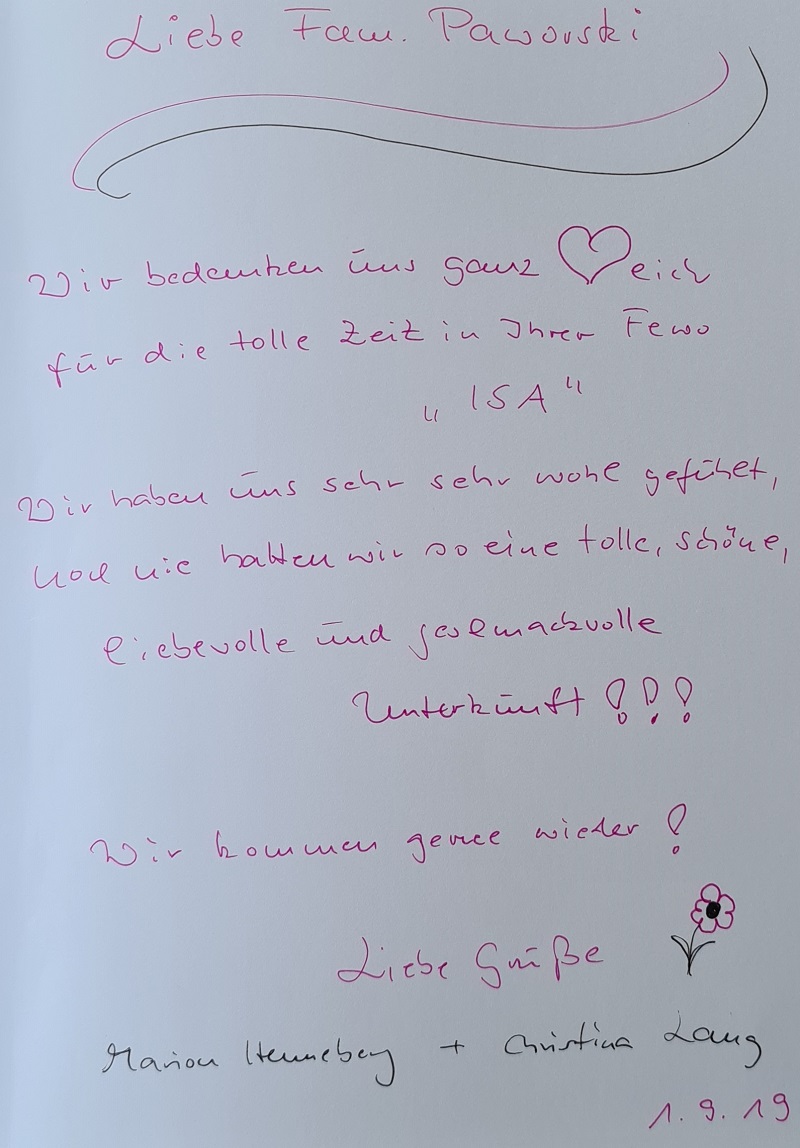 Liebe Fam. Paworski
Wir bedanken uns ganz ♡eich
für die tolle Zeit in Ihrer Fewo
„ISA“
Wir haben uns sehr sehr wohl gefühlt,
noch nie hatten wir so eine tolle, schöne,
liebevolle und geschmackvolle
Unterkunft!!!
Wir kommen gerne wieder!
Liebe Grüße
Marion Henneberg + Christina Lang
1.9.19